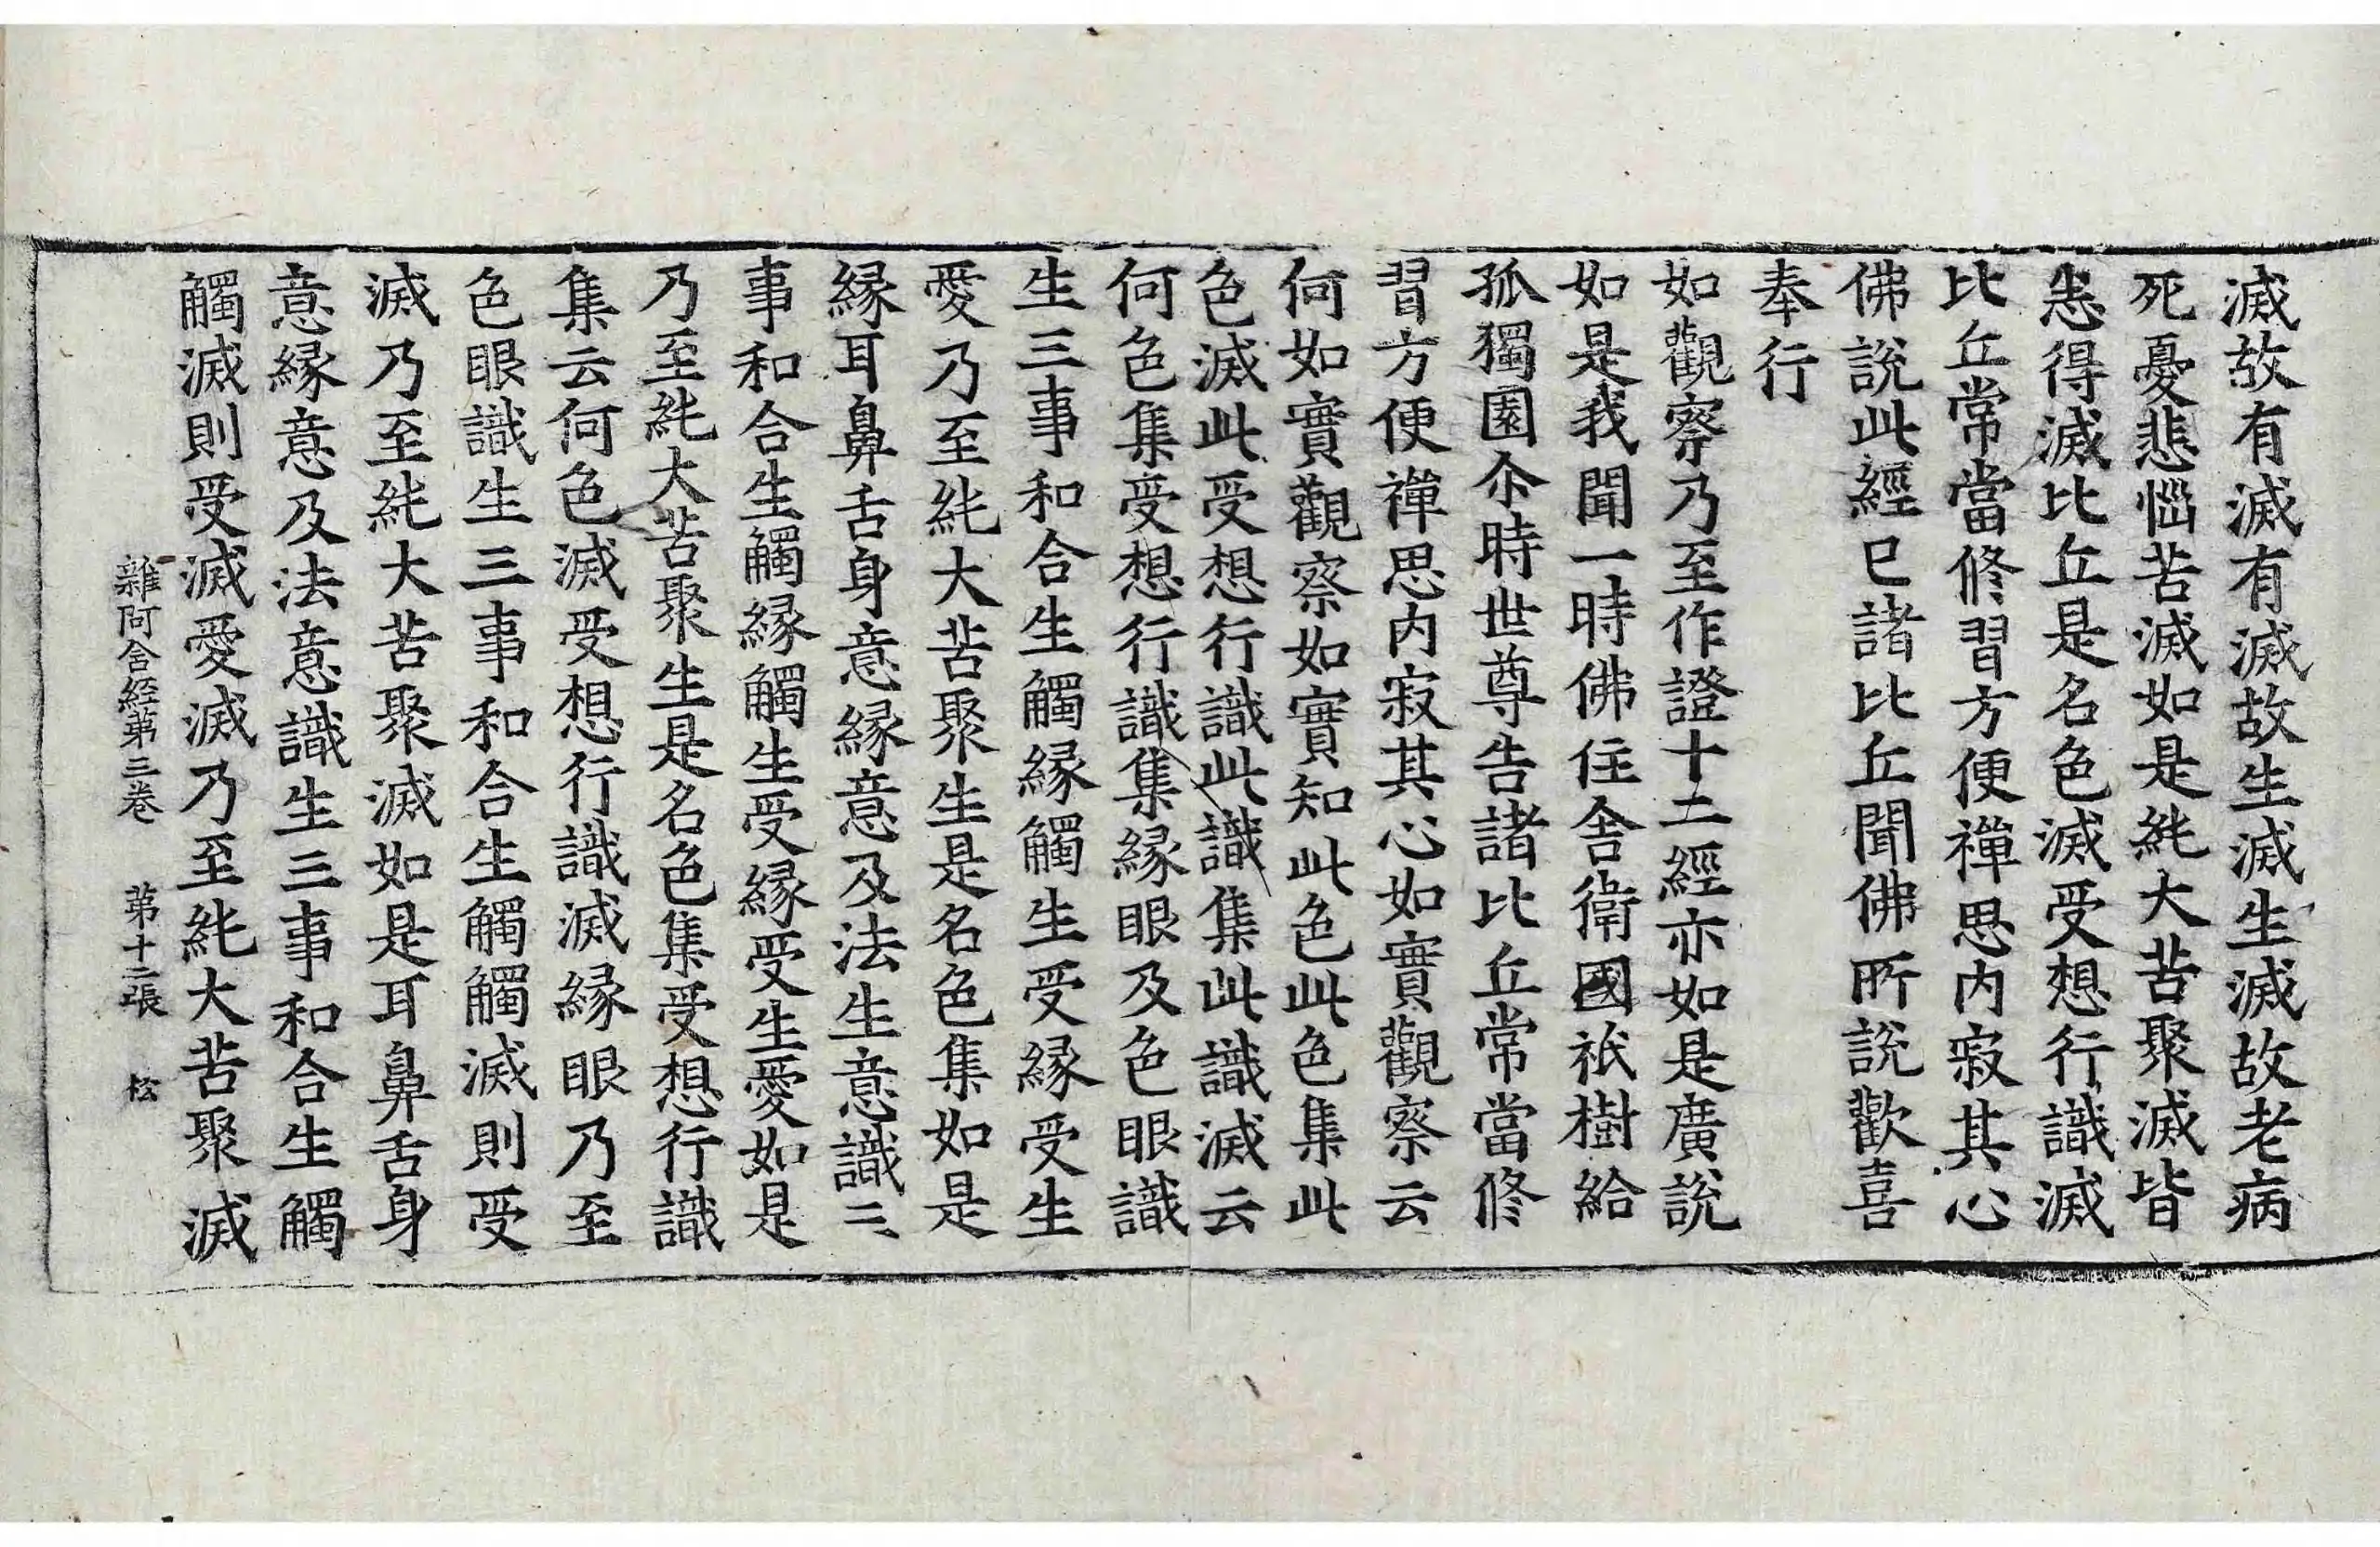 滅故有滅有滅故生滅生滅故老病
死憂悲惱苦滅如是純大苦聚滅皆
悉得滅比丘是名色滅受想行識滅
比丘常當修習方便禪思内寂其心
佛說此經已諸比丘聞佛所說歡喜
奉行
如觀察乃至作證十二經亦如是廣說
如是我聞一時佛住舍衛國祇樹給
孤獨園尒時世尊告諸比丘常當修
習方便禪思内寂其心如實觀察云
何如實觀察如實知此色此色集此
色滅此受想行識此識集此識滅云
何色集受想行識集緣眼及色眼識
生三事和合生觸緣觸生受緣受生
愛乃至純大苦聚生是名色集如是
緣耳鼻舌身意緣意及法生意識三
事和合生觸緣觸生受緣受生愛如是
乃至純大苦聚生是名色集受想行識
集云何色滅受想行識滅緣眼乃至
色眼識生三事和合生觸觸滅則受
滅乃至純大苦聚滅如是耳鼻舌身
意緣意及法意識生三事和合生觸
觸滅則受滅愛滅乃至純大苦聚滅
雜阿含經第三卷 第十二張 松